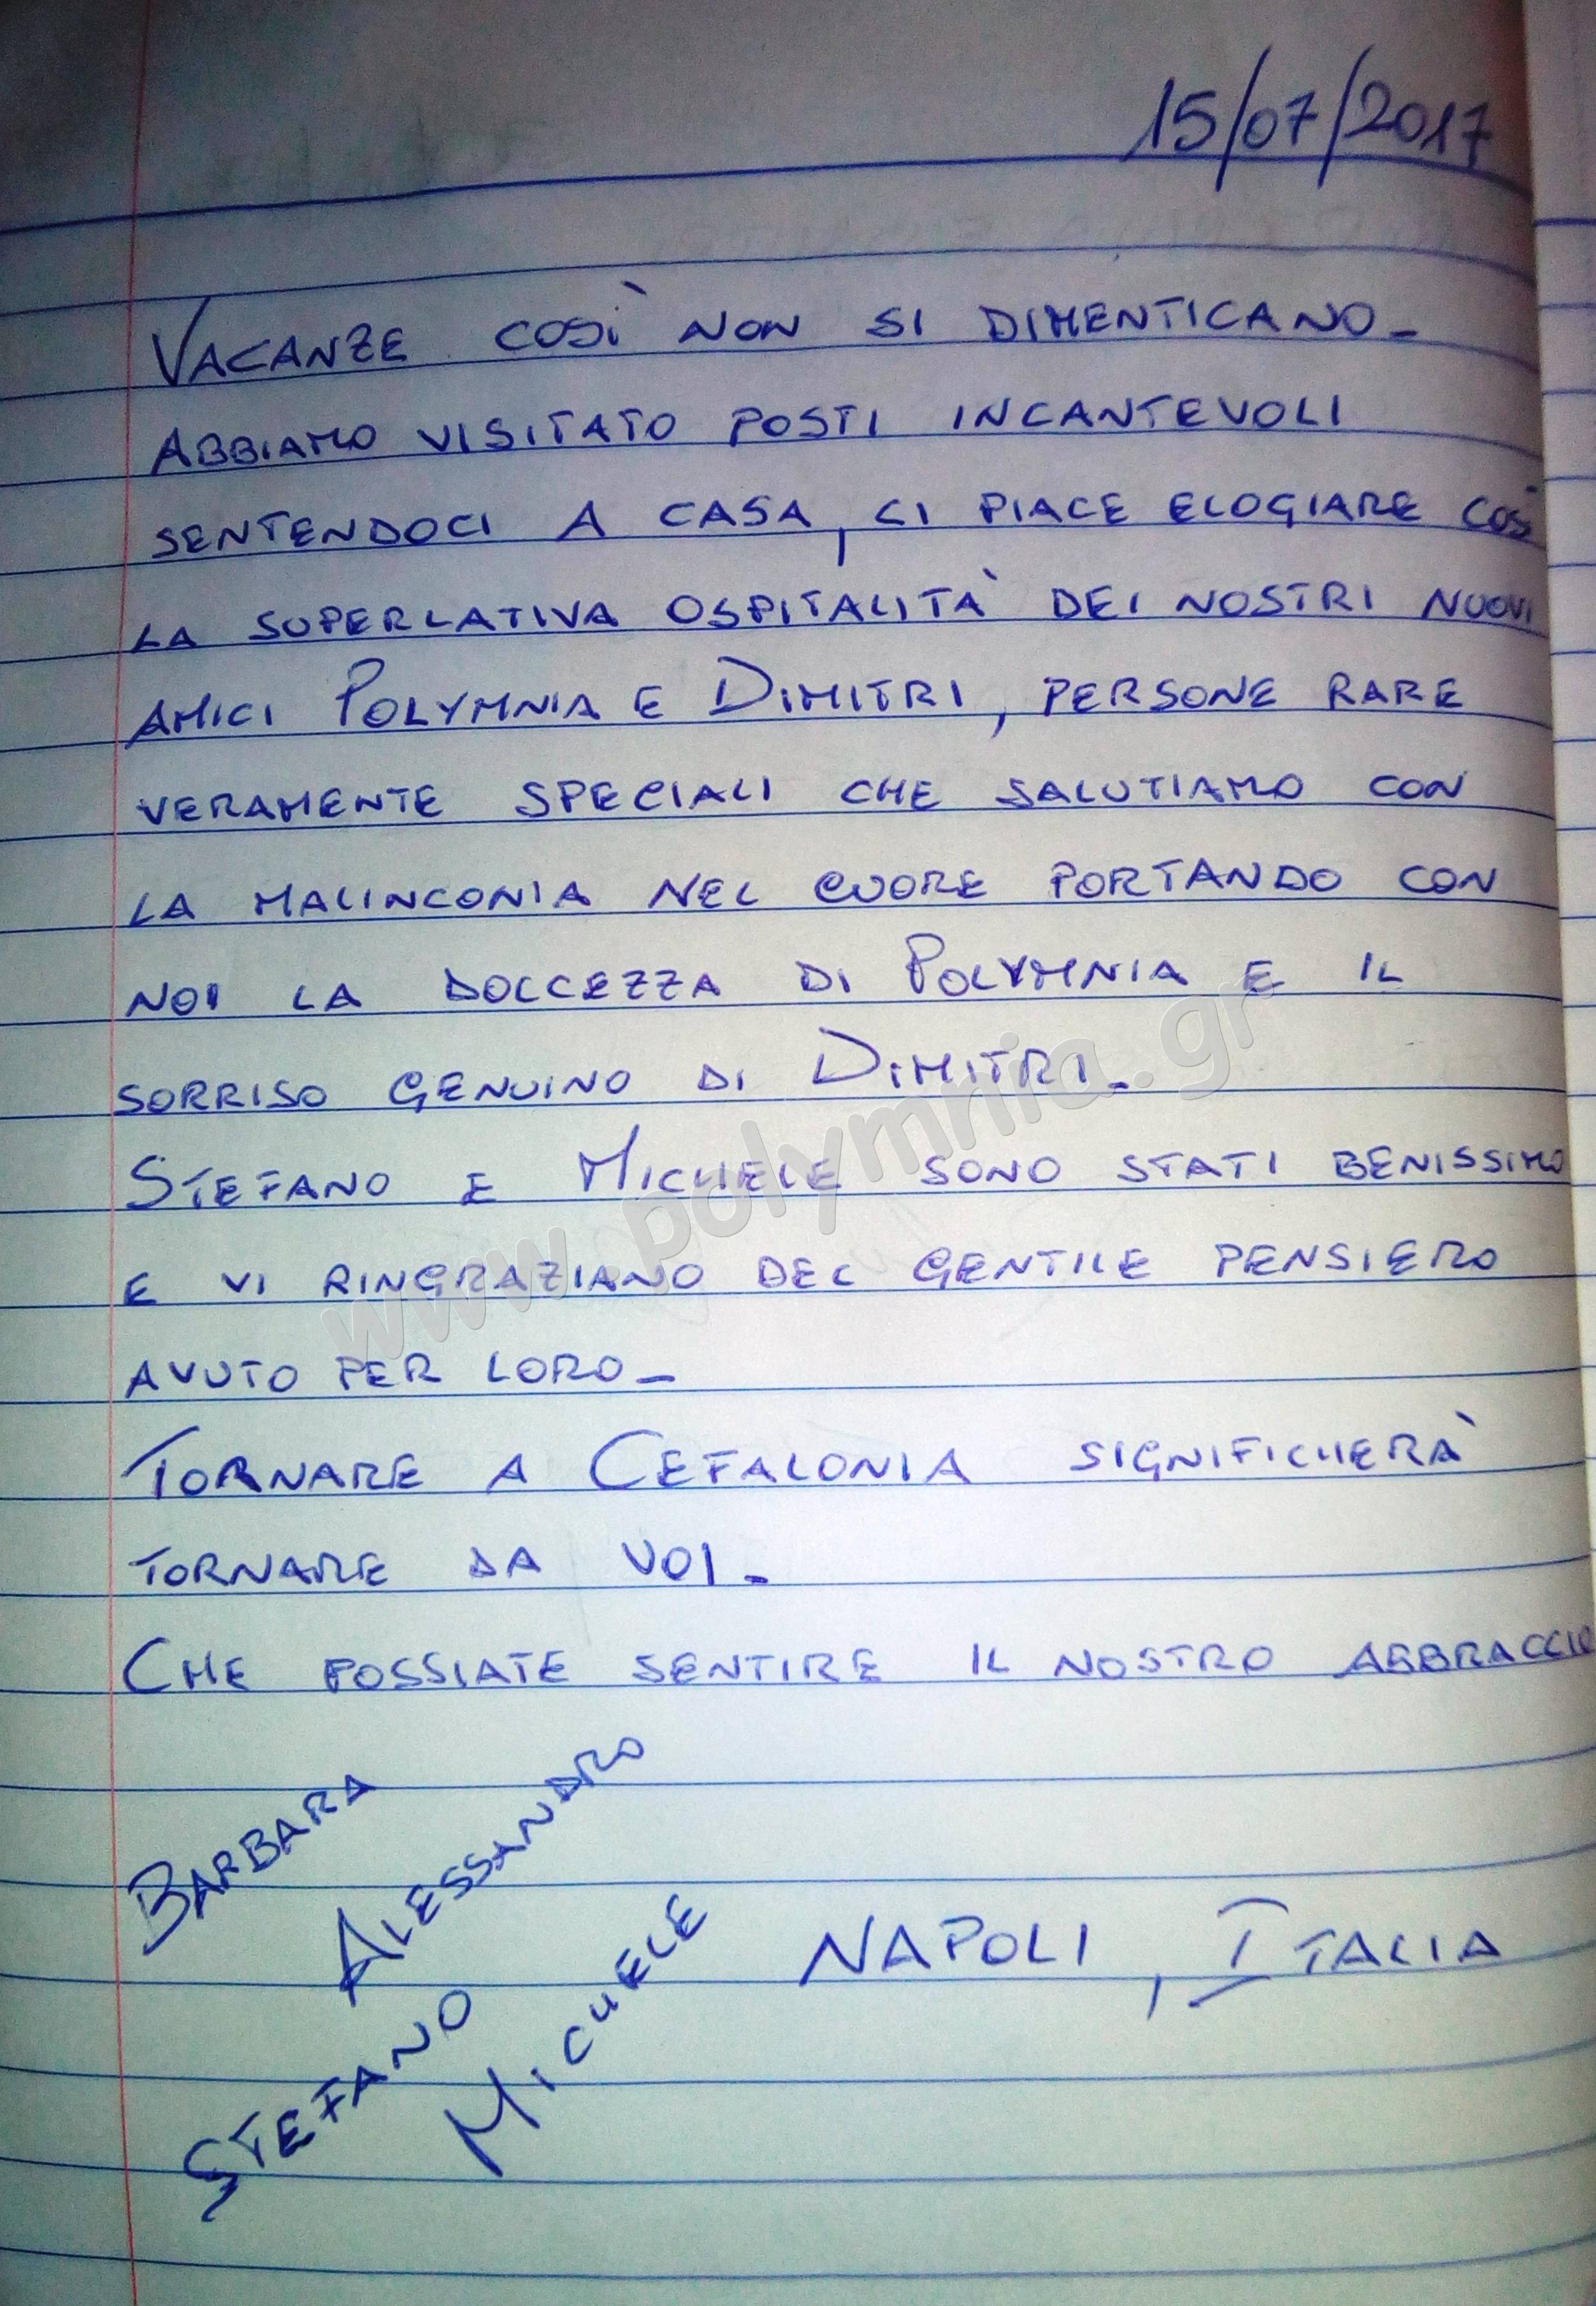 15/07/2017
VACANZE COSÌ NON SI DIMENTICANO_
ABBIAMO VISITATO POSTI INCANTEVOLI
SENTENDOCI A CASA, CI PIACE ELOGIARE COSÌ
LA SUPERLATIVA OSPITALITÀ DEI NOSTRI NUOVI
AMICI POLYMNIA E DIMITRI, PERSONE RARE
VERAMENTE SPECIALI CHE SALUTIAMO CON
LA MALINCONIA NEL CUORE PORTANDO CON
NOI LA DOLCEZZA DI POLYMNIA E IL
SORRISO GENUINO DI DIMITRI_
STEFANO E MICHELE SONO STATI BENISSIMO
E VI RINGRAZIANO DEL GENTILE PENSIERO
AVUTO PER LORO_
TORNARE A CEFALONIA SIGNIFICHERÀ
TORNARE DA VOI_
CHE POSSIATE SENTIRE IL NOSTRO ABBRACCIO
BARBARA
ALESSANDRO
STEFANO
MICHELE
NAPOLI, ITALIA
www.polymnia.gr